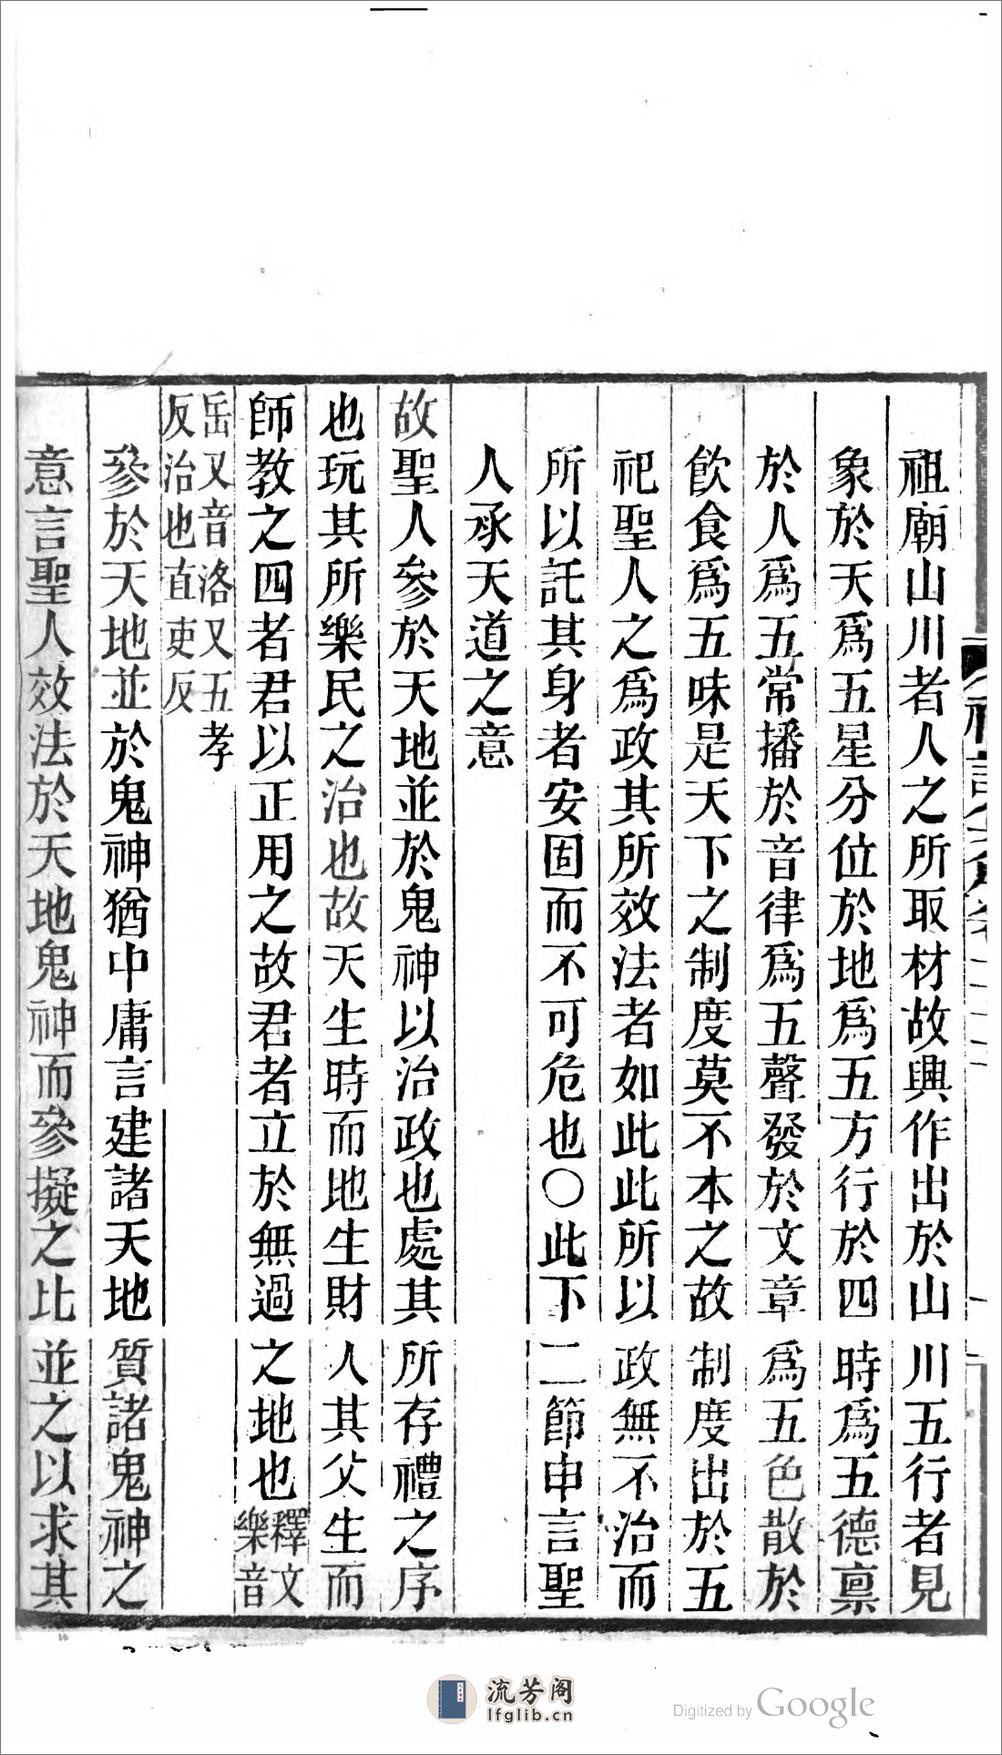 祖廟山川者人之所取材故興作出於山川五行者見
象於天爲五星分位於地爲五方行於四時爲五德稟
於人爲五常播於音律爲五聲發於文章爲五色散於
飲食爲五味是天下之制度莫不本之故制度出於五
祀聖人之爲政其所效法者如此此所以政無不治而
所以託其身者安固而不可危也○此下二節申言聖
人承天道之意
故聖人參於天地並於鬼神以治政也處其所存禮之序
也玩其所樂民之治也故天生時而地生財人其父生而
師教之四者君以正用之故君者立於無過之地也釋文樂音
岳又音洛又五孝
反治也直吏反
參於天地並於鬼神猶中庸言建諸天地質諸鬼神之
意言聖人效法於天地鬼神而參擬之比並之以求其
流芳阁
lfglib.cn
Digitized by Google